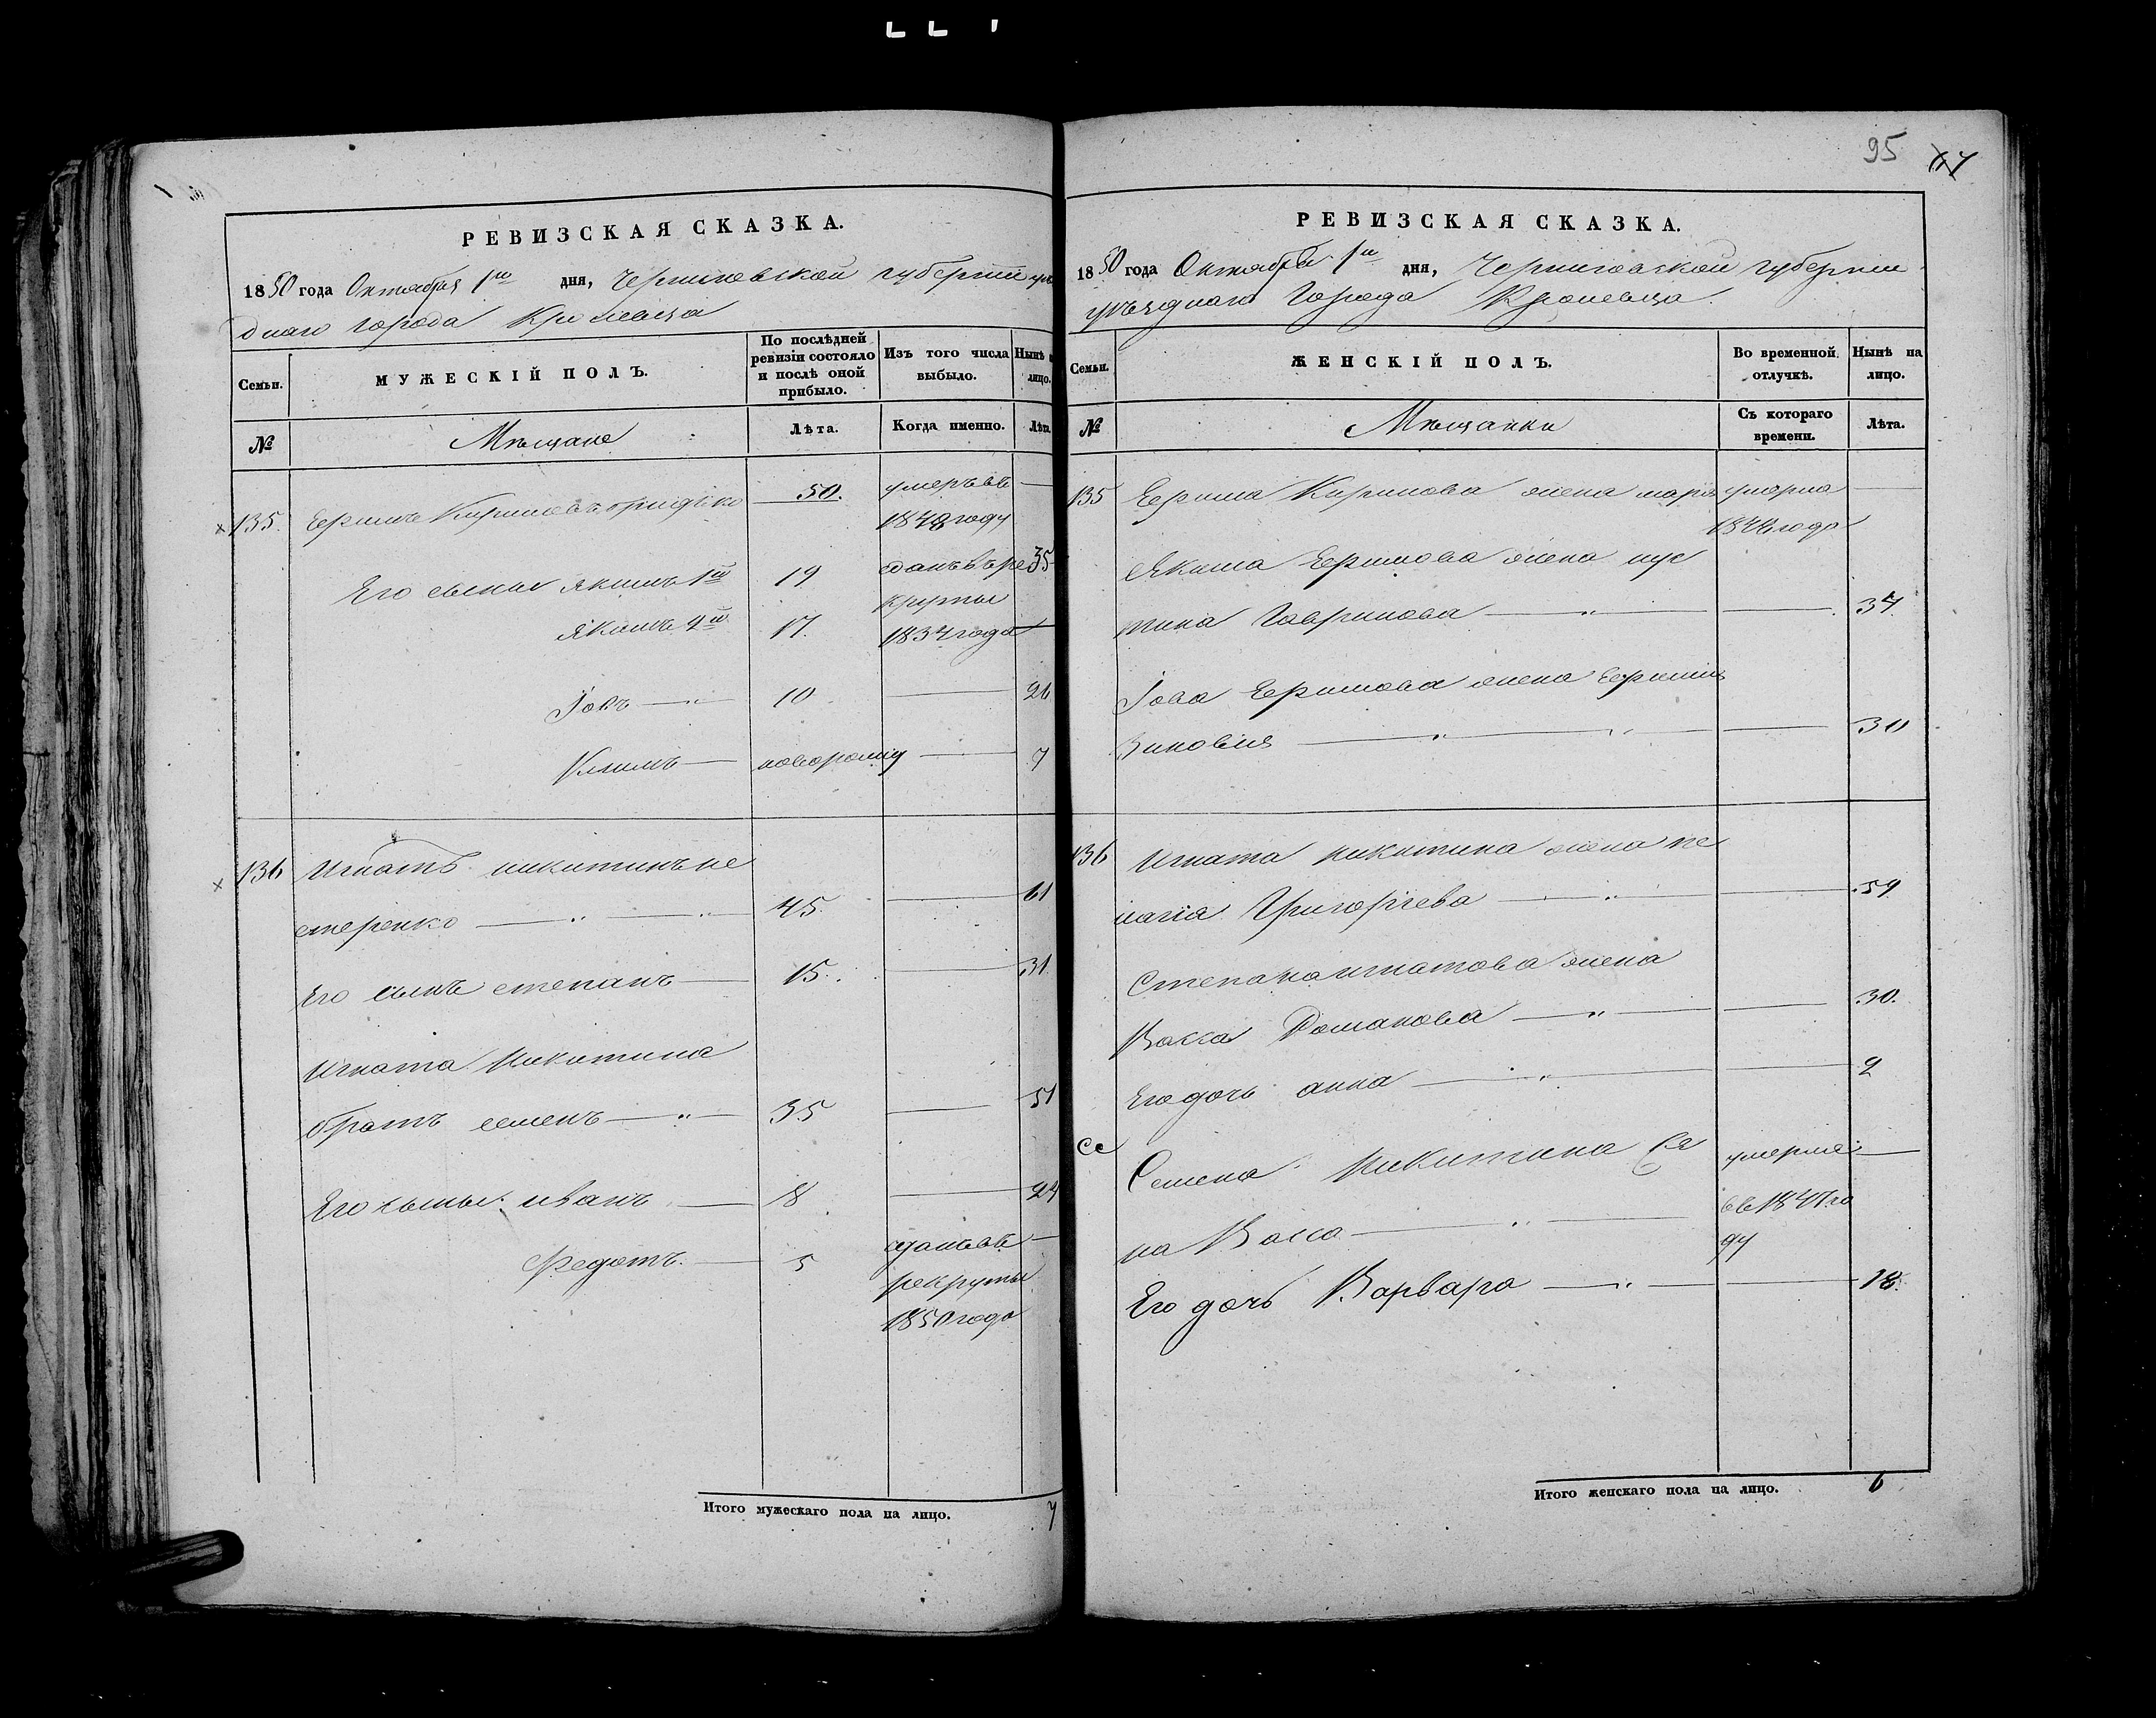 РЕВИЗСКАЯ СКАЗКА.
1850 года Октября 1го дня, Черниговской губернии уѣз
днаго города Кролевца
Семьи.
МУЖЕСКІЙ ПОЛЪ.
По послѣдней
ревизіи состояло
и послѣ оной
прибыло.
Изъ того числа
выбыло.
Нынѣ
лицо.
№
Мѣщане
Лѣта.
Когда именно.
Лѣта.
135. Ефимъ Кириловъ 50. умеръ въ
году
Его сыны Якимъ 1й 19 35
Якимъ 2й 17. круты
года
Іовъ 10 26
Климъ 7
136 Игнатъ Никитинъ не
стеренко 45. 61
Его сынъ Степанъ 15. 31.
Игната Никитина
братъ Семенъ 35 51
Его сыны Иванъ 8 24
Федотъ. 5 сданъ въ
рекруты
1850 года
Итого мужескаго пола на лицо. 7
95
РЕВИЗСКАЯ СКАЗКА.
1850 года Октября 1го дня, Черниговской губернии
уѣзднаго города Кролевца.
Семьи.
ЖЕНСКІЙ ПОЛЪ.
Во временной
отлучкѣ.
Нынѣ на
лицо.
№
Мѣщанки
Съ котораго
времени.
Лѣта.
135 Ефима Кирилова жена умерла
года
Якима Ефимова жена Иус
тина Гаврилова 34.
Іова Ефимова жена
Зиновія 30
136 Игната Никитина жена Пе
лагія Григоріева 59
Степана Игнатова жена
Васса Романова 30.
Его дочь Анна 2
Се
Семена Никитина же умерла
на Васса въ 1847 го
ду
Его дочь Варвара 18.
Итого женскаго пола на лицо. 6